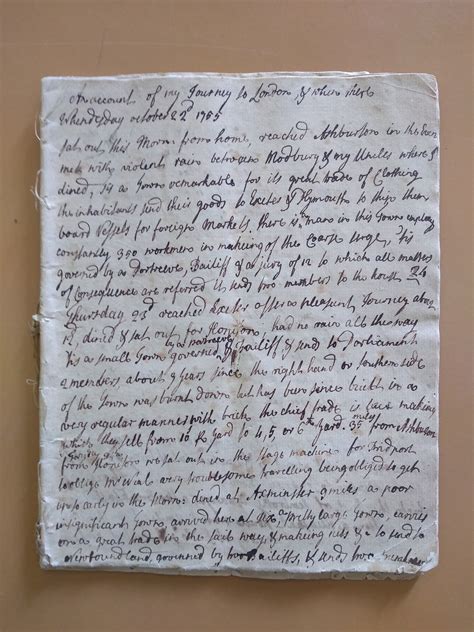 An account of my Journey to London & when there
Whendesday october 22d 1785
sat out this Morn: from home, reached Ashburton in the Even
met with violent rain between Modbury & my Uncles where I
dined, is a Town remarkable for its great trade of Clothing
the inhabitants send their goods to Exeter & Plymouth to ship them
board Vessels for foreign Markets. there is a man in this Town employs
constantly 350 workmen in makeing of the Coarse serge, 'tis
governed by a Portreeve, Bailiff & a jury of 12 to which all matters
of Consequence are referred & sends two members to the house 24
Thursday 23d reached Exeter after a pleasant Journey abou
12, dined & sat out for Honiton, had no rain all the way
'tis a small Town governed by a portreeve & Bailiff & send to Parliament
2 members about 9 years since the right hand or southern side
of the Town was burnt down but has been since built in a
very regular manner with brick the chief trade is lace making
which they sell from 16 £ yard to 4, 5, or 6d yard. 35 miles from Ashburton
from Honiton we sat out in the stage machine for Bridport
very troublesome travelling being obliged to get
up so early in the Morn: dined at Axminster 9 miles a poor
insignificant Town, arrived here at Six, a pretty large Town, carries
on a great trade in the sail way, & making nets & to send to
Newfoundland, governed by two Bailiffs, & sends two members